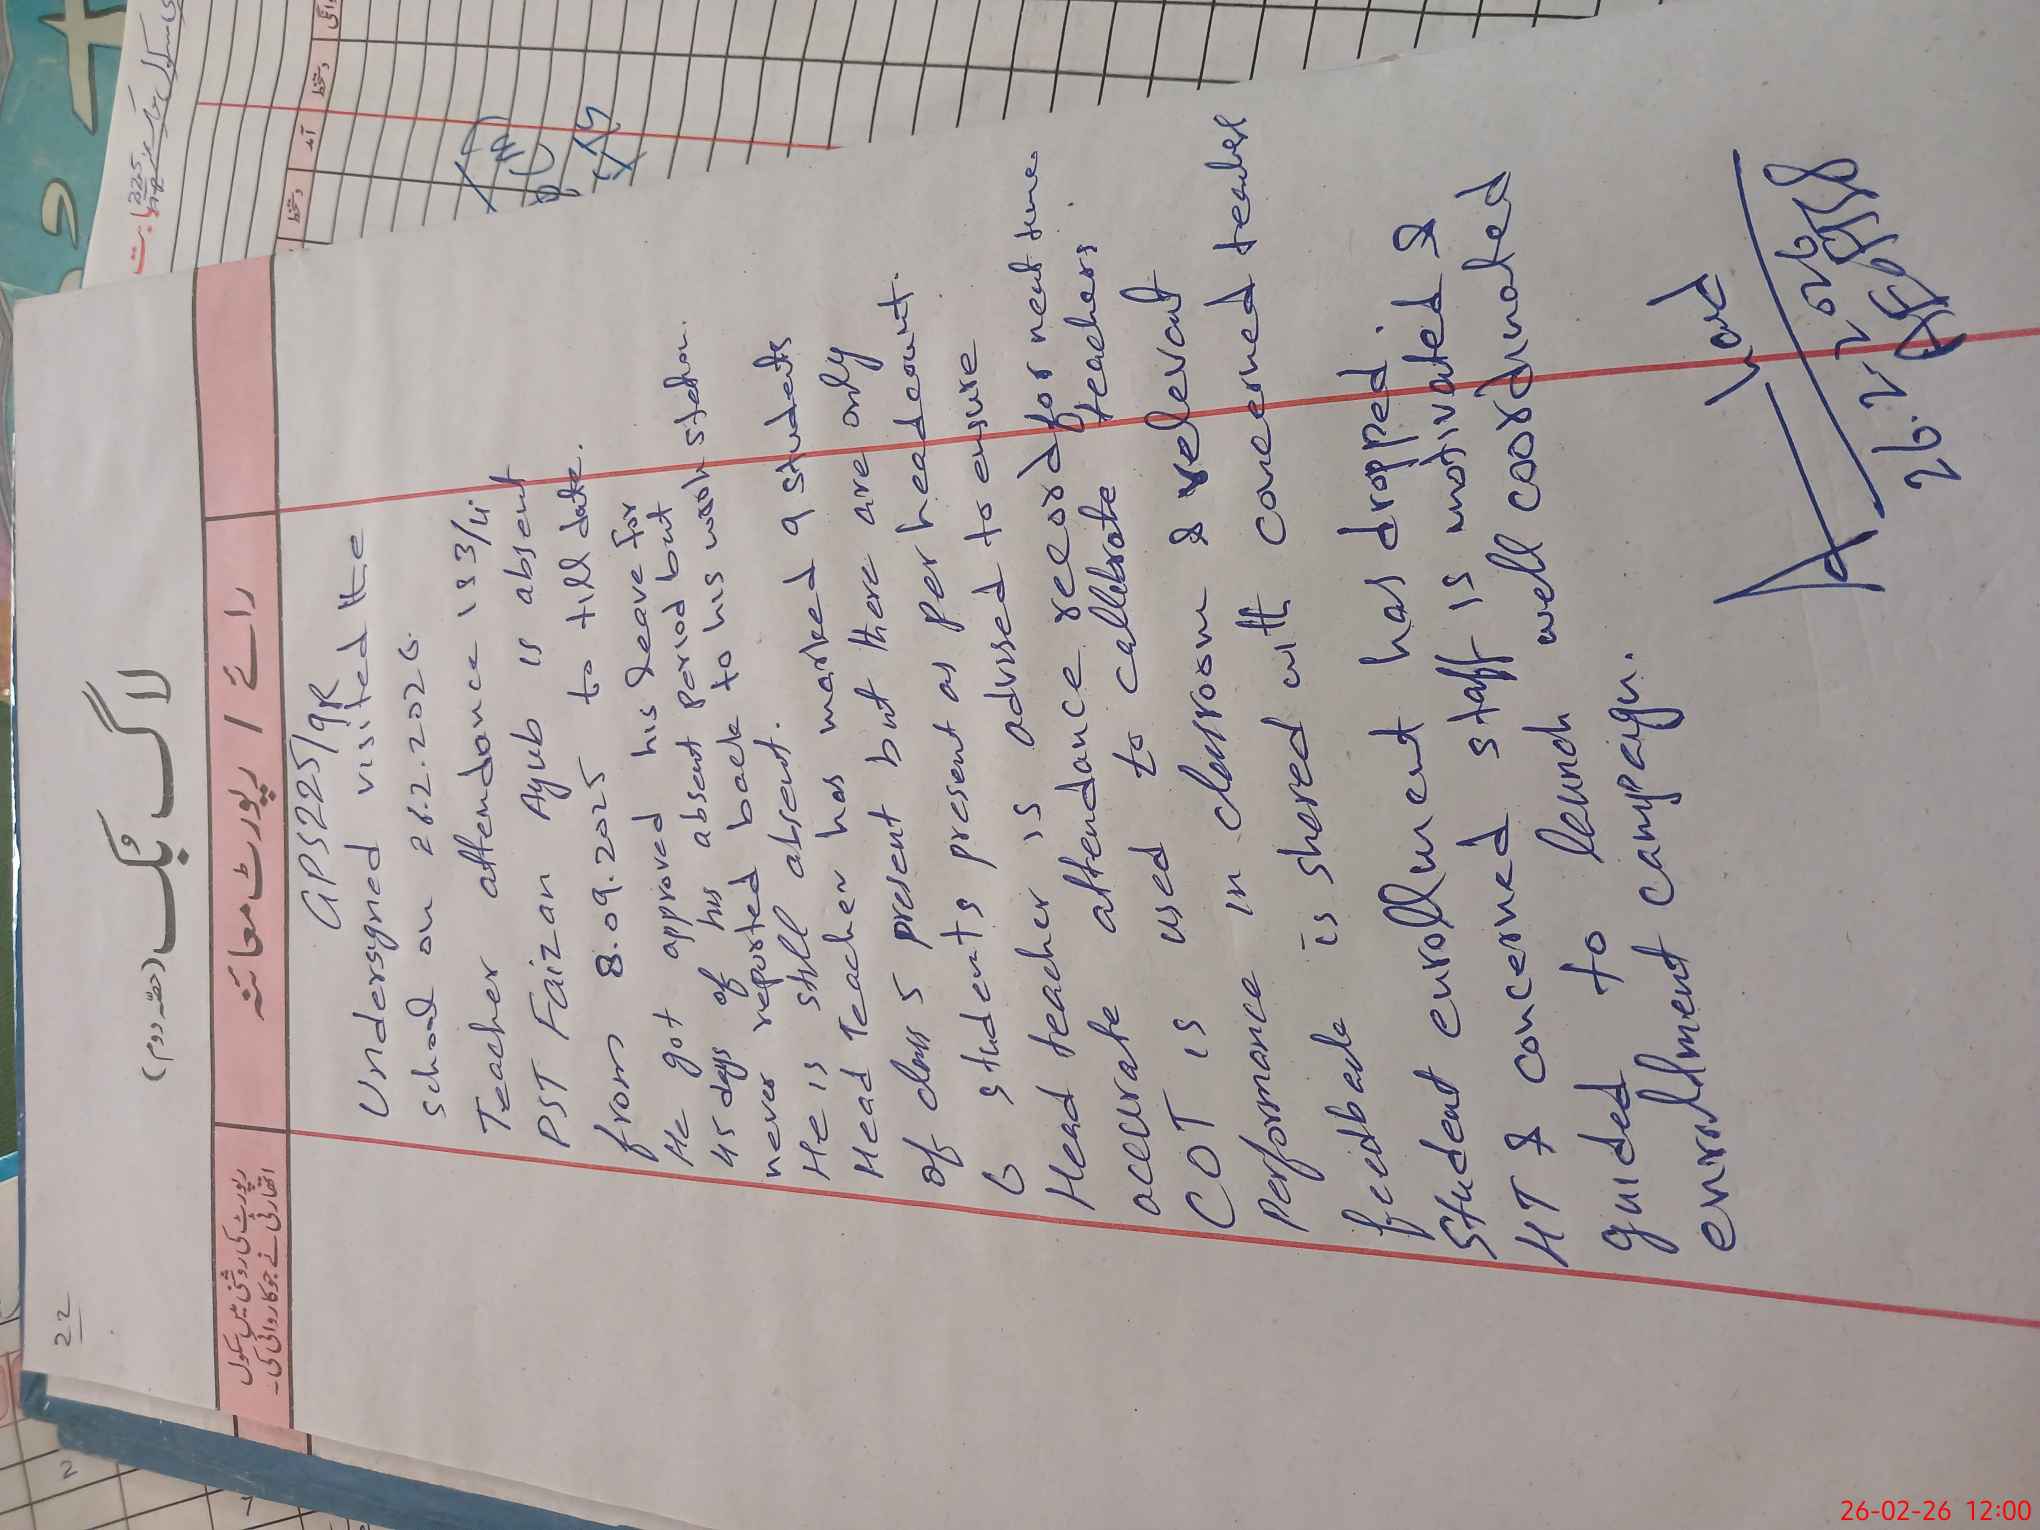 22
لاگ بُک
(حصّہ دوم)
رائے / رپورٹ معائنہ
رپورٹ کی روشنی میں سکول
اتھارٹی نے جو کاروائی کی۔
GPS225/9R
Undersigned visited the
school on 26.2.2026.
Teacher attendance is 3/4
PST Faizan Ayub is absent
from 8.09.2025 to till date.
He got approved his leave for
45 days of his absent period but
never reported back to his work station.
He is still absent.
Head Teacher has marked 9 students
of class 5 present but there are only
6 students present as per headcount.
Head teacher is advised to ensure
accurate attendance record for next time.
COT is used to callibrate teachers
Performance in classroom & relevant
feedback is shared with concerned teacher
Student enrollment has dropped.
HT & concerned staff is motivated &
guided to launch well coordinated
enrollment campaign.
26.2.2026
26-02-26 12:00